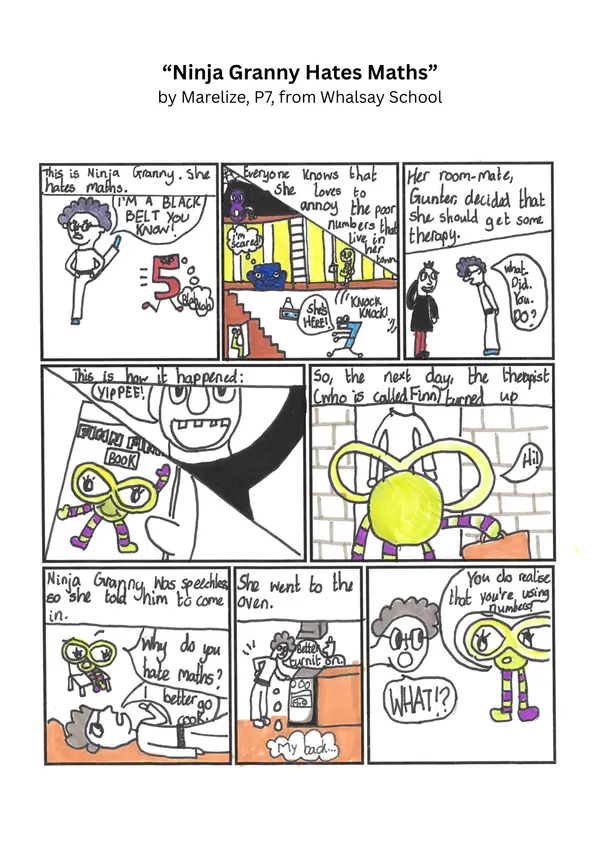 “Ninja Granny Hates Maths”
by Marelize, P7, from Whalsay School
This is Ninja Granny. She
hates maths.
I'M A BLACK
BELT YOU
KNOW!
Blah
blah
Everyone knows that
she loves to
annoy the poor
numbers that
live in
her
town.
i'm
scared!
She's
HERE!
KNOCK
KNOCK!
Her room-mate,
Gunter, decided that
she should get some
therapy.
What.
Did.
You.
DO?
This is how it happened:
YIPPEE!
BOOK
So, the next day, the therapist
(who is called Finn) turned up
Hi!
Ninja Granny was speechless
so she told him to come
in.
Why do you
hate maths?
I
better go
cook.
She went to the
oven.
Better
turn it on.
My back...
You do realise
that you're using
numbers?
WHAT!?